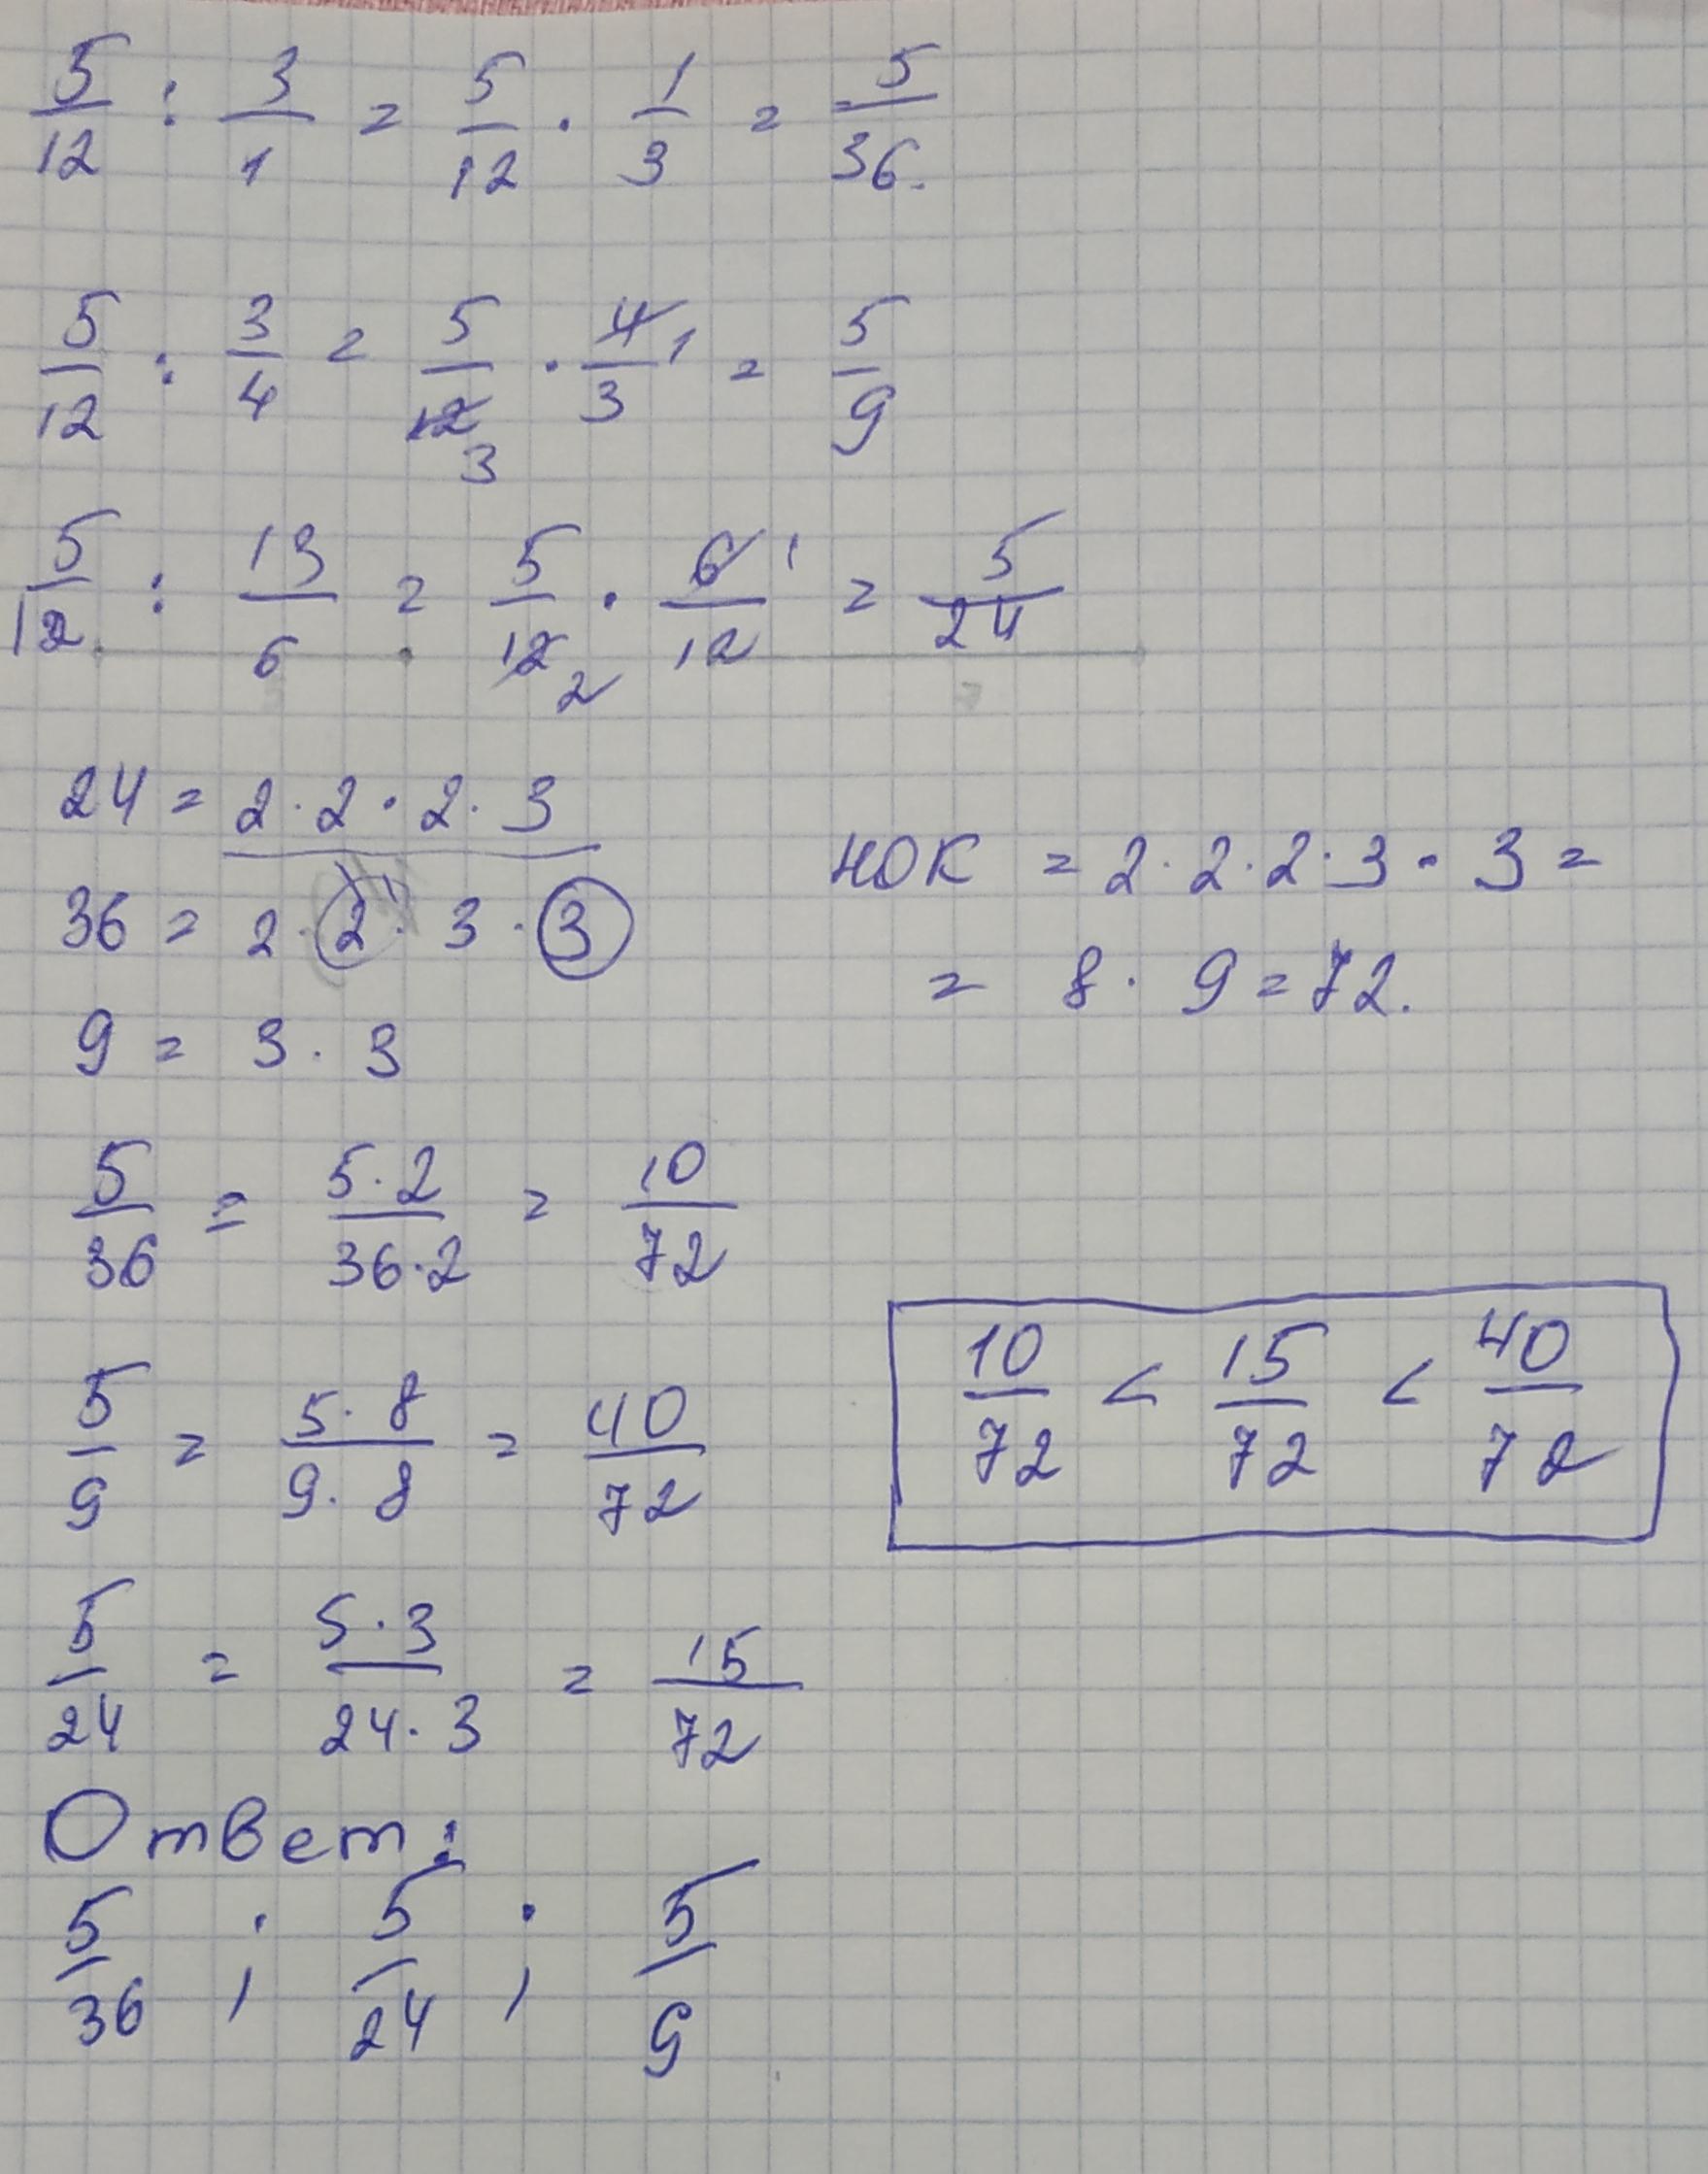 5/12 : 3/1 = 5/12 · 1/3 = 5/36.
5/12 : 3/4 = 5/12 3 · 4/3 1 = 5/9
5/12 : 13/6 = 5/12 2 · 6/12 1 = 5/24
24 = 2 · 2 · 2 · 3
НОК = 2 · 2 · 2 · 3 · 3 =
36 = 2 · 2 · 3 · 3
= 8 · 9 = 72.
9 = 3 · 3
5/36 = 5·2/36·2 = 10/72
10/72 < 15/72 < 40/72
5/9 = 5·8/9·8 = 40/72
5/24 = 5·3/24·3 = 15/72
Ответ:
5/36 ; 5/24 ; 5/9